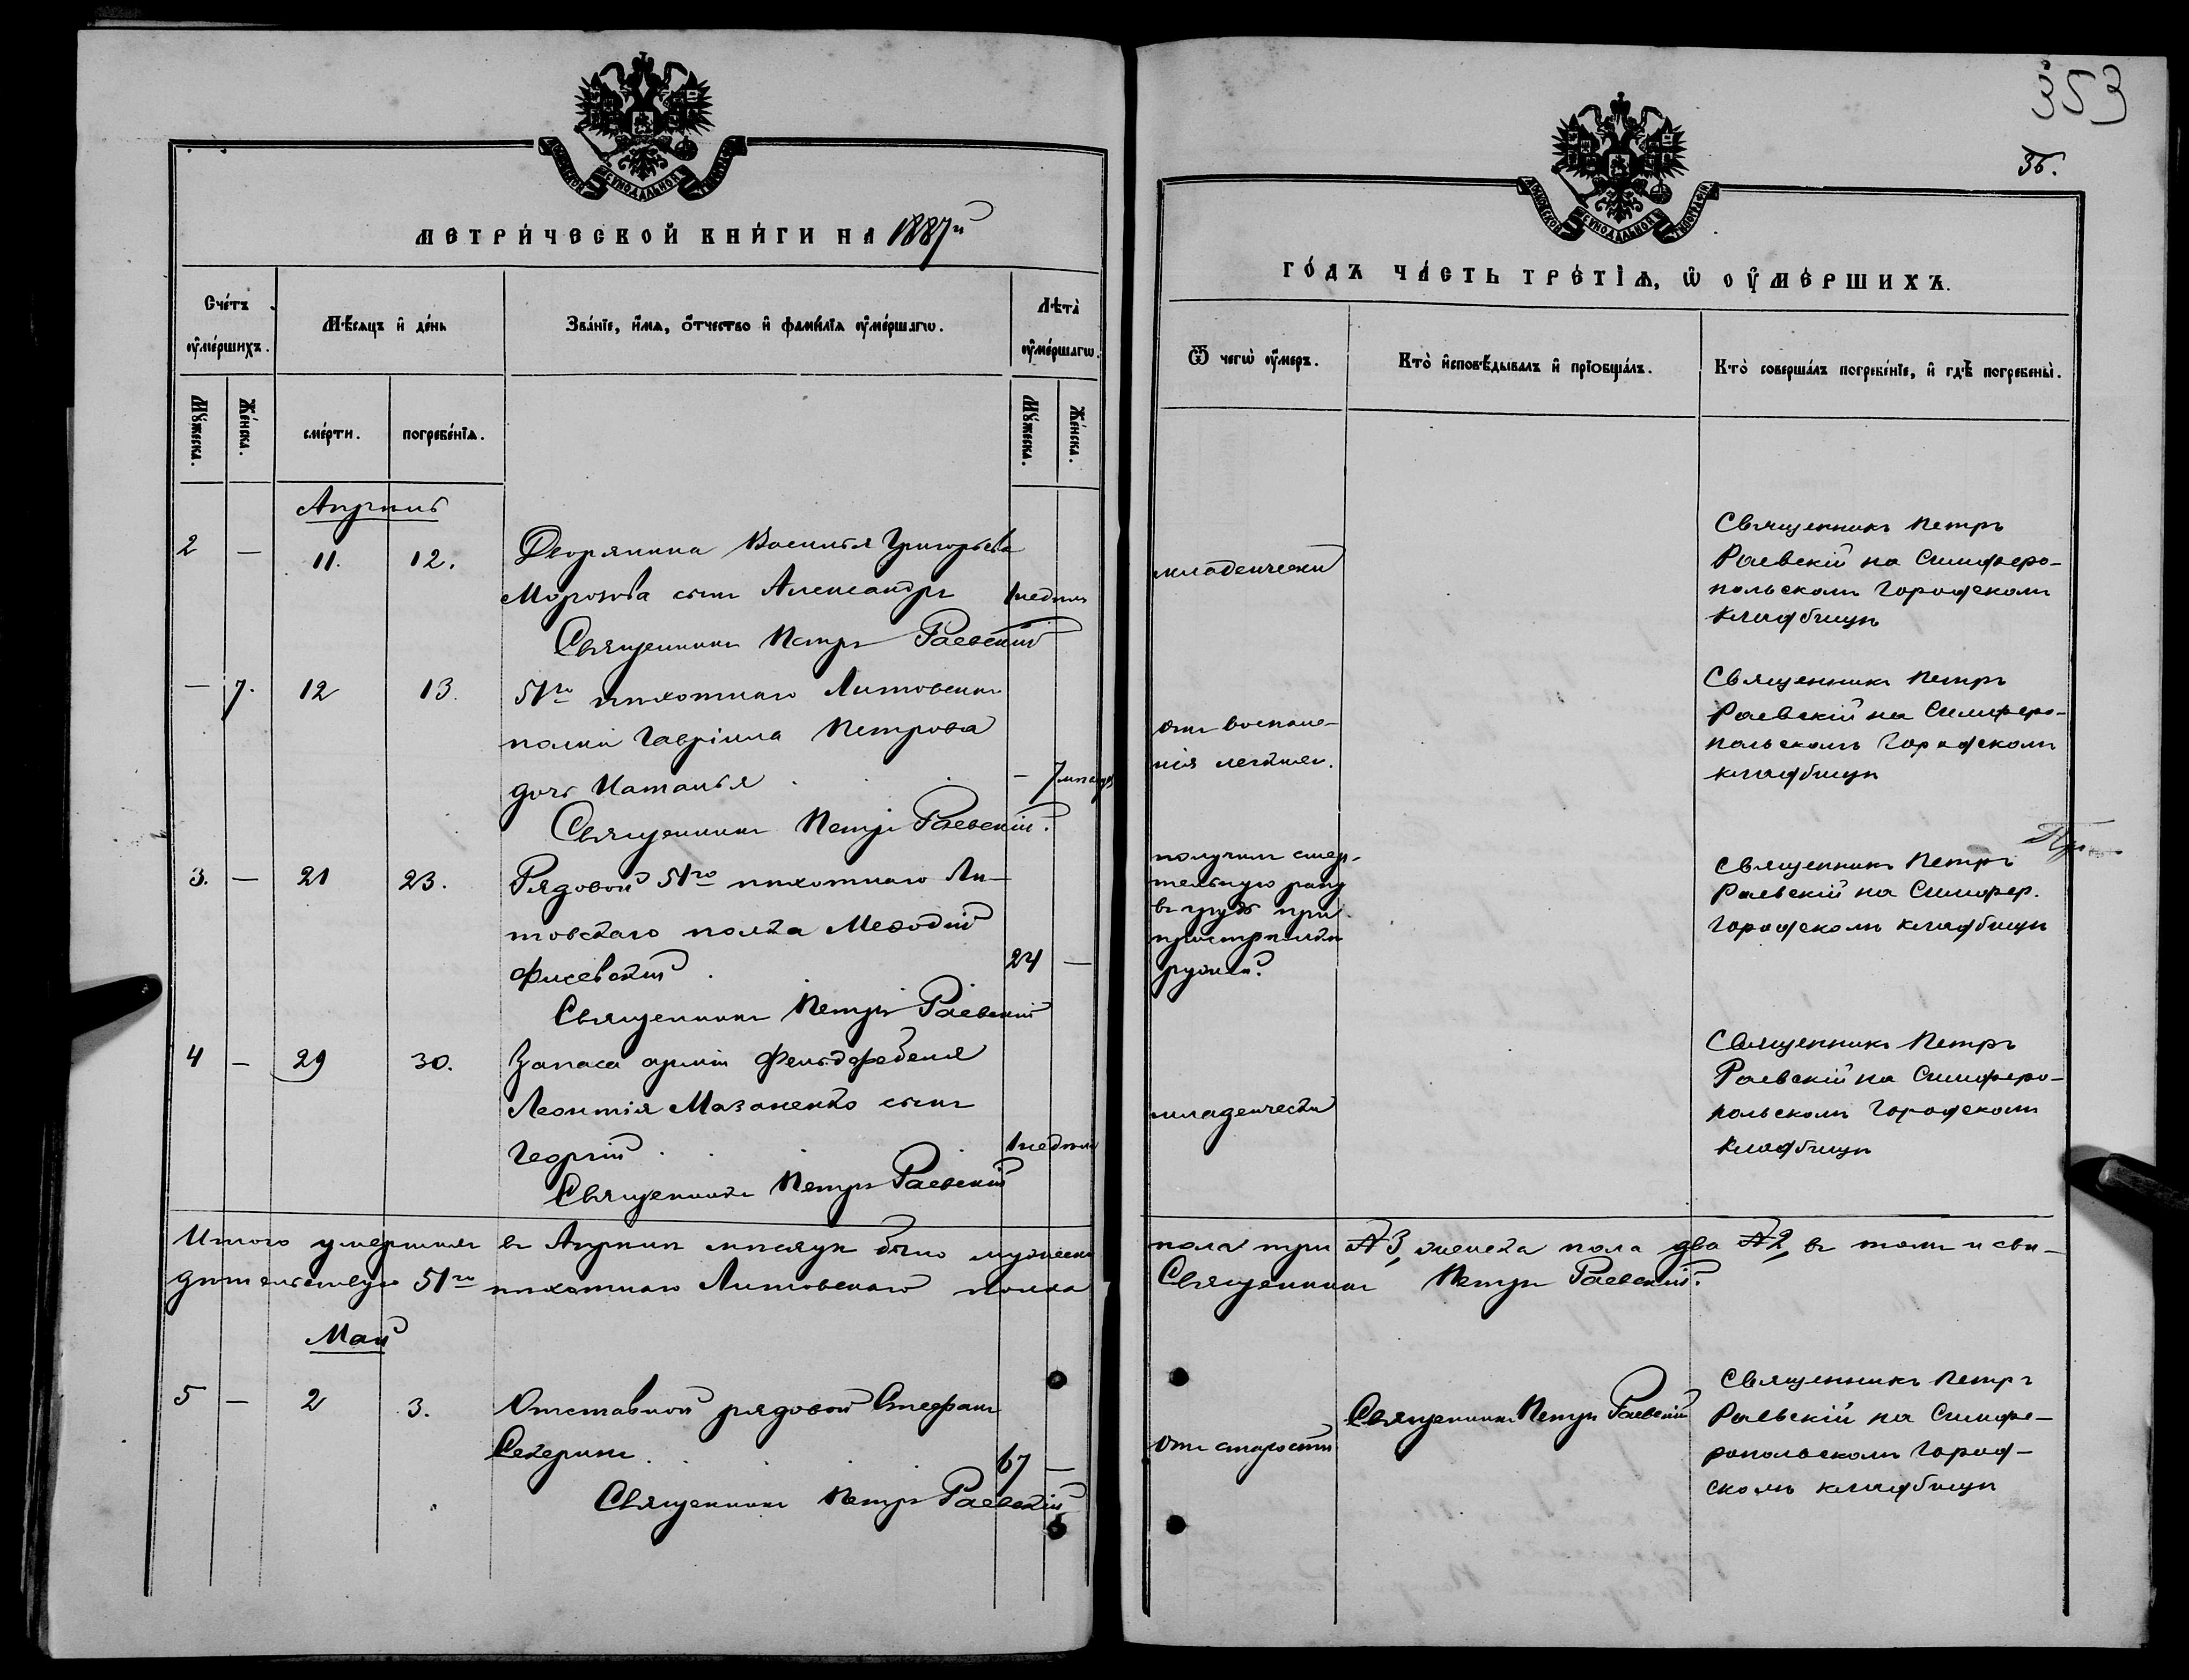 353
36.
МЕТРИ́ЧЕСКОЙ КНИ́ГИ НА 1887й
ГО́ДЪ ЧА́СТЬ ТРЕ́ТІѦ, Ѡ ОУ҆МЕ́РШИХЪ.
Сче́тъ оу҆ме́ршихъ.
Мѣ́сяцъ и҆ де́нь
Зва́нїе, и҆́мѧ, ѻ҆́тчество и҆ фами́лїѧ оу҆ме́ршагѡ.
Лѣта̀ оу҆ме́ршагѡ.
Ѿ чегѡ̀ оу҆́меръ.
Кто̀ и҆сповѣ́дывалъ и҆ прїобща́лъ.
Кто̀ соверша́лъ погребе́нїе, и҆ гдѣ̀ погребены̀.
Мꙋ́жеска.
Же́нска.
сме́рти.
погребе́нїѧ.
Мꙋ́жеска.
Же́нска.
Апрѣль
2 — 11. 12.
Дворянина Василья Григорьева
Морозова сынъ Александръ 1 недѣли
Священникъ Петръ Раевскій
младенчески
Священникъ Петръ
Раевскій на Симферо-
польскомъ Городскомъ
кладбищѣ
— 7. 12 13.
51го пѣхотнаго Литовскаго
полка Гавріила Петрова
дочь Наталья — 7 мѣсяц
Священникъ Петръ Раевскій.
отъ воспале-
нія легкихъ.
Священникъ Петръ
Раевскій на Симферо-
польскомъ Городскомъ
кладбищѣ
3. — 21 23.
Рядовой 51го пѣхотнаго Ли-
товскаго полка Меѳодій
Фисевскій 24 —
Священникъ Петръ Раевскій
получилъ смер-
тельную рану
въ грудь при
ружья.
Священникъ Петръ
Раевскій на Симфер.
Городскомъ кладбищѣ
4 — 29 30.
Запаса арміи фельдфебеля
Леонтія Мазаненко сынъ
Георгій 1 недѣли
Священникъ Петръ Раевскій
младенчески
Священникъ Петръ
Раевскій на Симферо-
польскомъ Городскомъ
кладбищѣ
Итого умершихъ въ Апрѣлѣ мѣсяцѣ было мужеска пола три № 3, женска пола два № 2, въ томъ и сви-
дѣтельствую 51го пѣхотнаго Литовскаго полка Священникъ Петръ Раевскій.
Май
5 — 2 3.
Отставной рядовой Стефанъ
Секеринъ 67 —
Священникъ Петръ Раевскій
отъ старости
Священникъ Петръ Раевскій
Священникъ Петръ
Раевскій на Симфе-
ропольскомъ Город-
скомъ кладбищѣ